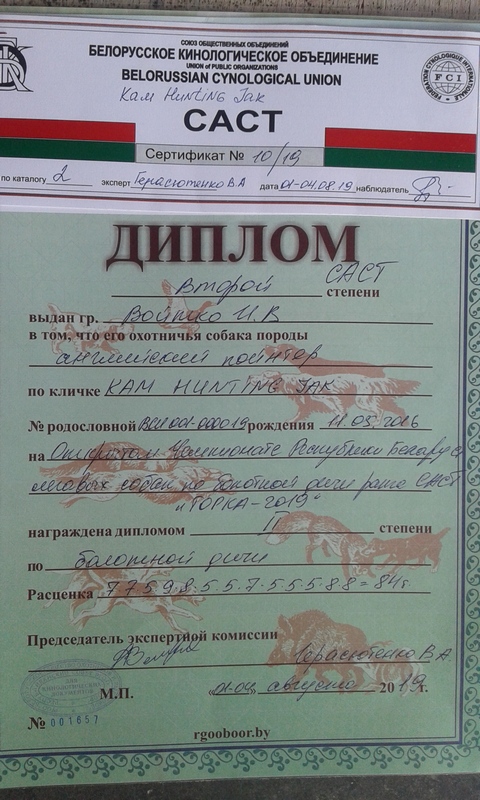 СОЮЗ ОБЩЕСТВЕННЫХ ОБЪЕДИНЕНИЙ
БЕЛОРУССКОЕ КИНОЛОГИЧЕСКОЕ ОБЪЕДИНЕНИЕ
UNION of PUBLIC ORGANIZATIONS
BELORUSSIAN CYNOLOGICAL UNION
FEDERATION CYNOLOGIQUE INTERNATIONALE
FCI
Кам Hunting Jak
CACT
Сертификат № 10/19
по каталогу 2 эксперт Герасютенко В.А дата 01-04.08.19 наблюдатель
ДИПЛОМ
Второй CACT степени
выдан гр. Войтко И.В
в том, что его охотничья собака породы
английский пойнтер
по кличке КАМ HUNTING JAK
№ родословной рождения 11.05.2016
на Открытом Чемпионате Республики Беларусь
легавых собак по болотной дичи ранга CACT
"ГОРКА-2019"
награждена дипломом II степени
по болотной дичи
Расценка 7 7 5 9 8 . 5 . 5 . 7 . 5 5 5 8 8 = 84
Председатель экспертной комиссии
Герасютенко В А
М.П. «01-04» августа 2019г.
№ 001657
rgooboor.by